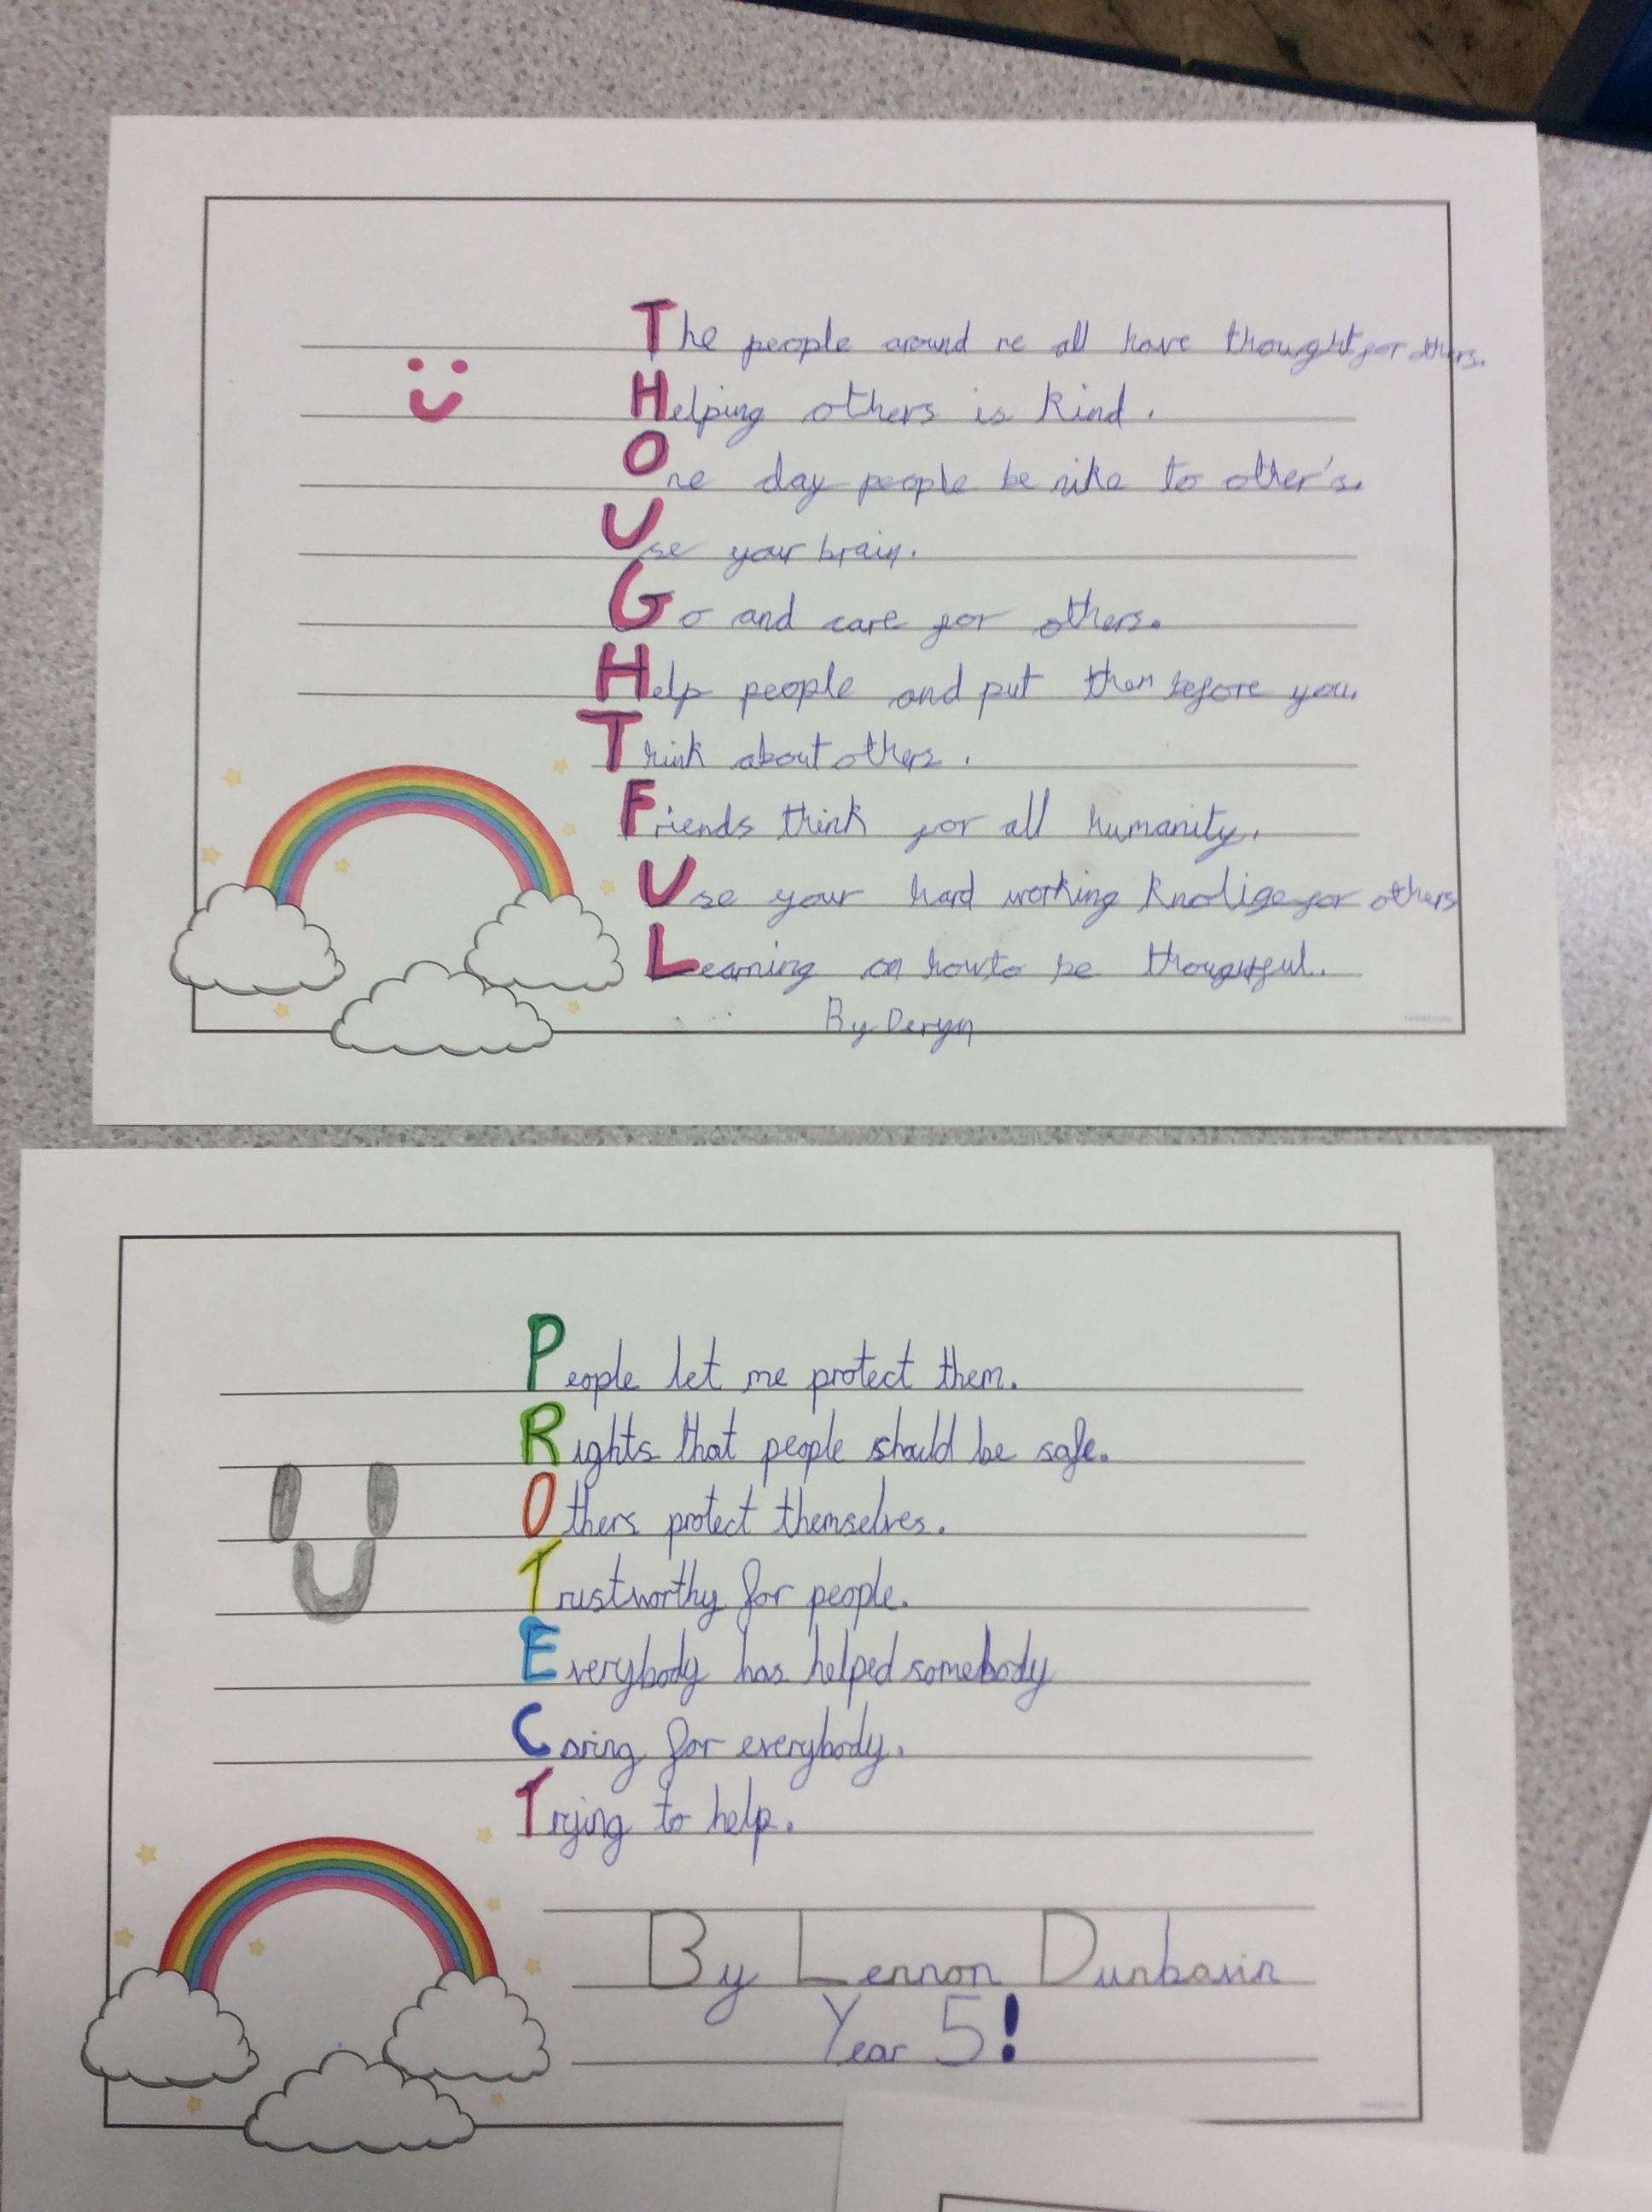 The people around me all have thought for others.
Helping others is kind.
One day people be nike to other's.
Use your brain.
Go and care for others.
Help people and put them before you.
Think about others.
Friends think for all humanity.
Use your hard working Knolige for others
Learning on how to be thoughtful.
By Deryn
People let me protect them.
Rights that people should be safe.
Others protect themselves.
Trustworthy for people.
Everybody has helped somebody
Caring for everybody.
Trying to help.
By Lennon Dunbavin
Year 5!